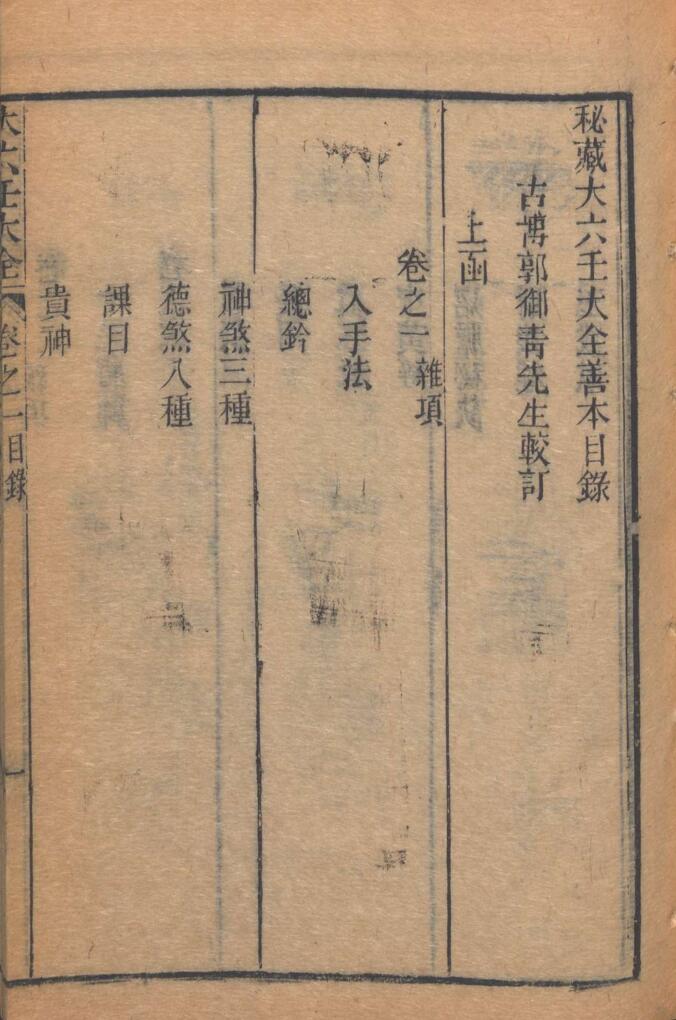 秘藏大六壬大全善本目錄
古博郭御青先生較訂
上函
卷之一 雜項
入手法
總鈐
神煞三種
德煞八種
課目
貴神
大六壬大全 卷之一 目錄 一